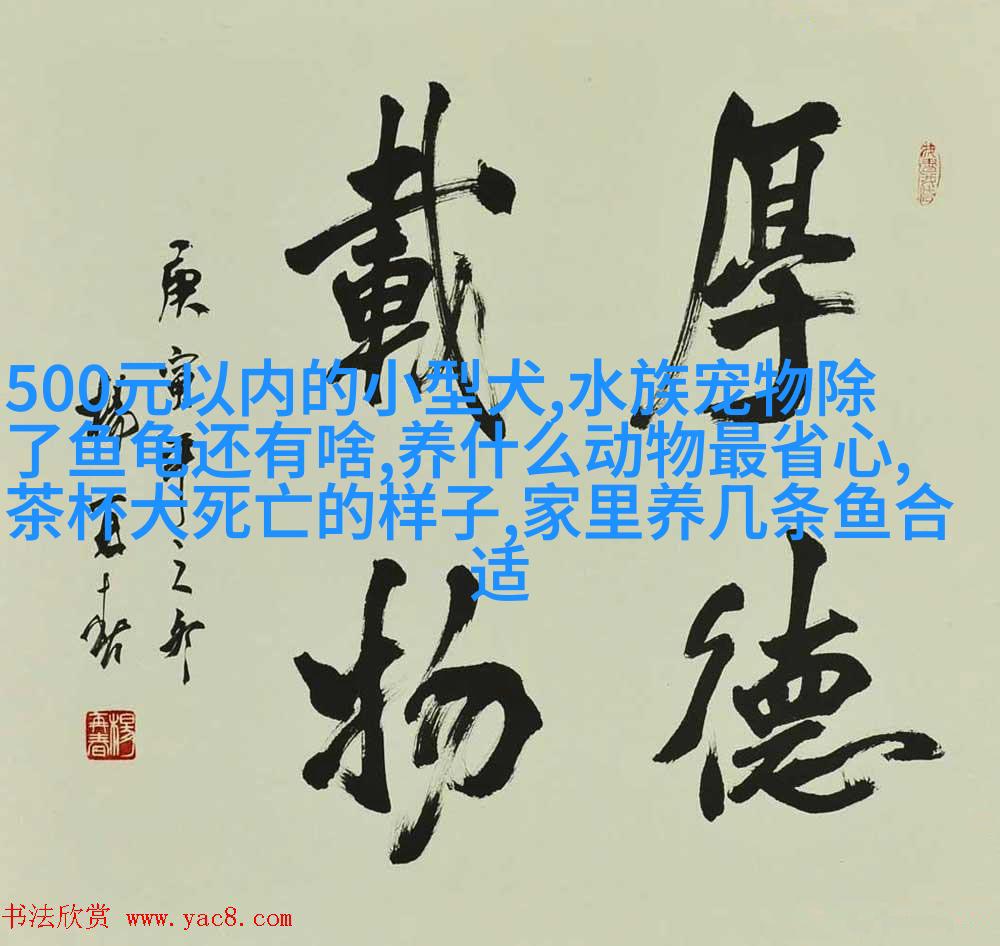 厚德
載物
庚寅年之夏
楊再春
楊再春
500元以内的小型犬,水族宠物除
了鱼龟还有啥,养什么动物最省心,
茶杯犬死亡的样子,家里养几条鱼合
适
书法欣赏 www.yac8.com